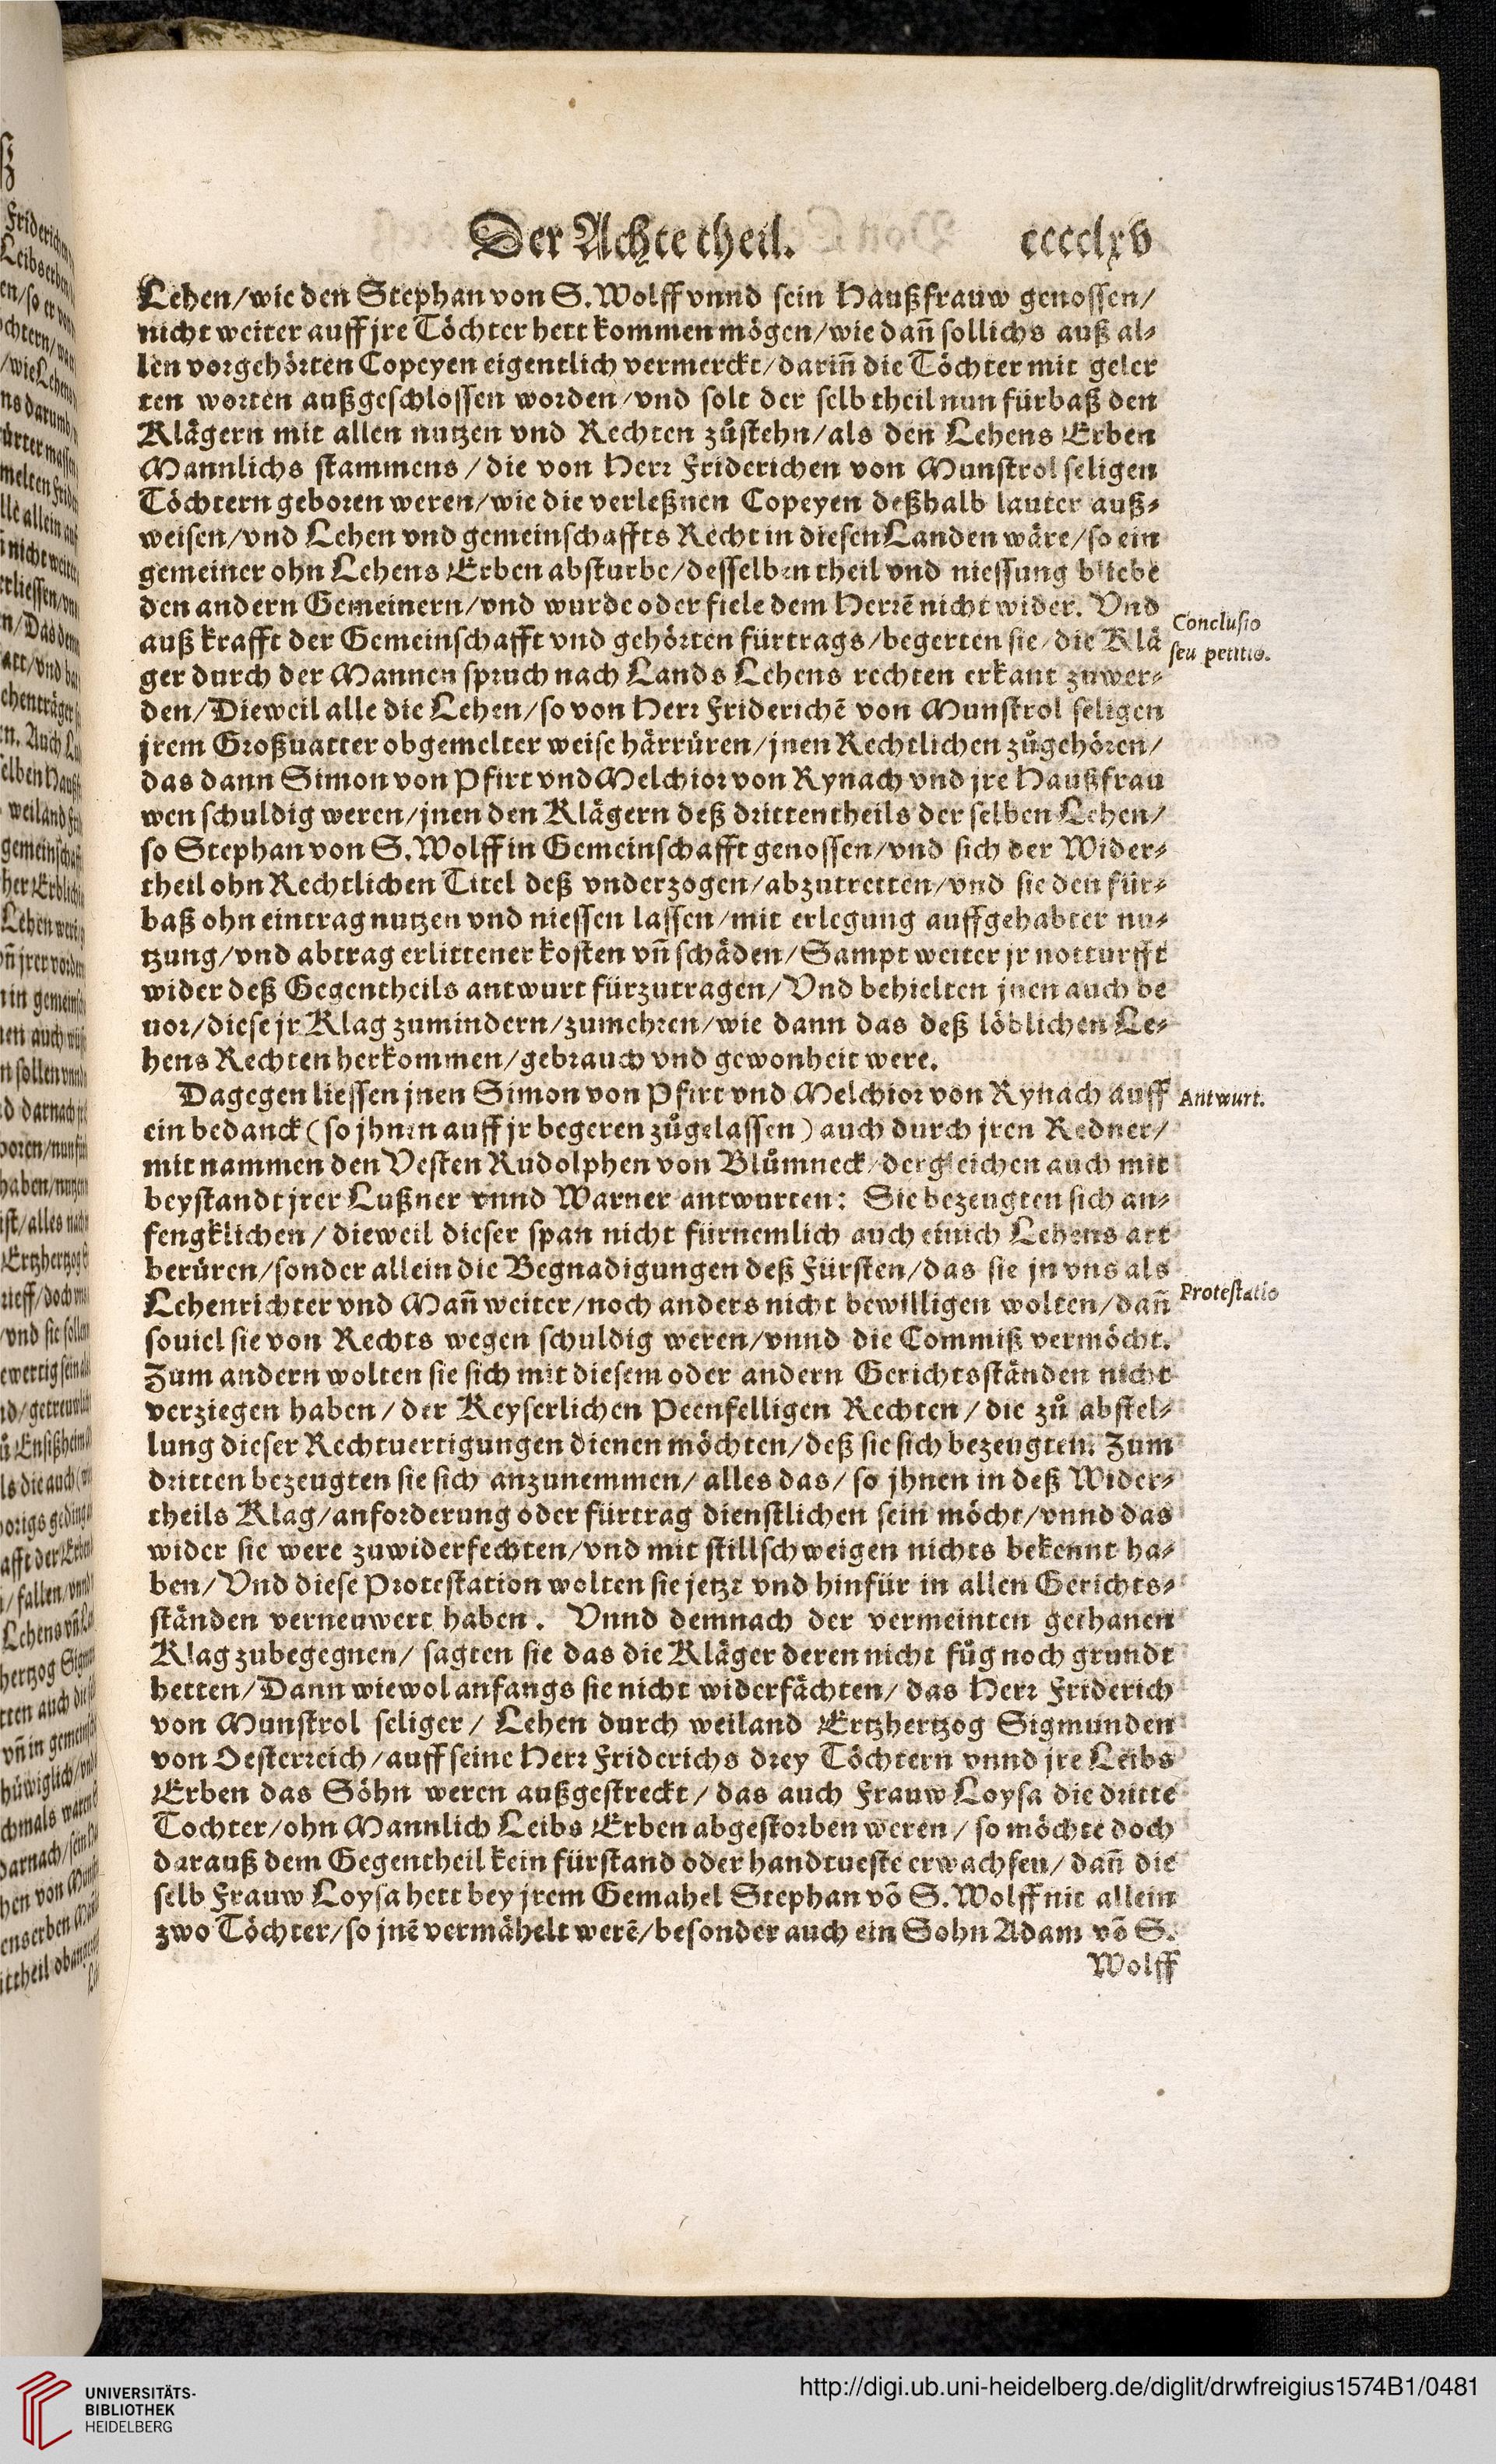 Der Achte theil. cccclxv
Lehen/wie den Stephan von S. Wolff vnnd sein Haußfrauw genossen/
nicht weiter auff jre Töchter hett kommen mögen/wie dañ sollichs auß al-
len vorgehörten Copeyen eigentlich vermerckt/dariñ die Töchter mit geler
ten worten außgeschlossen worden/vnd solt der selb theil nun fürbaß den
Klägern mit allen nutzen vnd Rechten zůstehn/als den Lehens Erben
Mannlichs stammens/die von Herr Friderichen von Munstrol seligen
Töchtern geboren weren/wie die verleßnen Copeyen deßhalb lauter auß-
weisen/vnd Lehen vnd gemeinschaffts Recht in diesen Landen wäre/so ein
gemeiner ohn Lehens Erben absturbe/desselben theil vnd niessung bliebe
den andern Gemeinern/vnd wurde oder fiele dem Herrē nicht wider. Vnd
Conclusio
seu petitio.
auß krafft der Gemeinschafft vnd gehörten fürtrags/begerten sie/die Klä
ger durch der Mannen spruch nach Lands Lehens rechten erkant zuwer-
den/Dieweil alle die Lehen/so von Herr Friderichē von Munstrol seligen
jrem Großuatter obgemelter weise härrüren/jnen Rechtlichen zůgehören/
das dann Simon von Pfirt vnd Melchior von Rynach vnd jre Haußfrau
wen schuldig weren/jnen den Klägern deß drittentheils der selben Lehen/
so Stephan von S. Wolff in Gemeinschafft genossen/vnd sich der Wider-
theil ohn Rechtlichen Titel deß vnderzogen/abzutretten/vnd sie den für-
baß ohn eintrag nutzen vnd niessen lassen/mit erlegung auffgehabter nu-
tzung/vnd abtrag erlittener kosten vñ schäden/Sampt weiter jr notturfft
wider deß Gegentheils antwurt fürzutragen/Vnd behielten jnen auch be
uor/diese jr Klag zumindern/zumehren/wie dann das deß löblichen Le-
hens Rechten herkommen/gebrauch vnd gewonheit were.
Dagegen liessen jnen Simon von Pfirt vnd Melchior von Rynach auff
Antwurt.
ein bedanck (so jhnen auff jr begeren zůgelassen) auch durch jren Redner/
mit nammen den Vesten Rudolphen von Blůmneck/dergleichen auch mit
beystandt jrer Lußner vnnd Warner antwurten: Sie bezeugten sich an-
fengklichen/dieweil dieser span nicht fürnemlich auch einich Lehens art
berüren/sonder allein die Begnadigungen deß Fürsten/das sie jn vns als
Lehenrichter vnd Mañ weiter/noch anders nicht bewilligen wolten/dañ
Protestatio
souiel sie von Rechts wegen schuldig weren/vnnd die Commiß vermöcht.
Zum andern wolten sie sich mit diesem oder andern Gerichtsständen nicht
verziegen haben/der Keyserlichen Peenfelligen Rechten/die zů abstel-
lung dieser Rechtuertigungen dienen möchten/deß sie sich bezeugten. Zum
dritten bezeugten sie sich anzunemmen/alles das/so jhnen in deß Wider-
theils Klag/anforderung oder fürtrag dienstlichen sein möcht/vnnd das
wider sie were zuwiderfechten/vnd mit stillschweigen nichts bekennt ha-
ben/Vnd diese Protestation wolten sie jetzt vnd hinfür in allen Gerichts-
ständen verneuwert haben. Vnnd demnach der vermeinten gethanen
Klag zubegegnen/sagten sie das die Kläger deren nicht fůg noch grundt
hetten/Dann wiewol anfangs sie nicht widerfächten/das Herr Friderich
von Munstrol seliger/Lehen durch weiland Ertzhertzog Sigmunden
von Oesterreich/auff seine Herr Friderichs drey Töchtern vnnd jre Leibs
Erben das Söhn weren außgestreckt/das auch Frauw Loysa die dritte
Tochter/ohn Mannlich Leibs Erben abgestorben weren/so möchte doch
darauß dem Gegentheil kein fürstand oder handtueste erwachsen/dañ die
selb Frauw Loysa hett bey jrem Gemahel Stephan võ S. Wolff nit allein
zwo Töchter/so jnē vermähelt werē/besonder auch ein Sohn Adam võ S.
Wolff
UNIVERSITÄTS-
BIBLIOTHEK
HEIDELBERG
http://digi.ub.uni-heidelberg.de/diglit/drwfreigius1574B1/0481